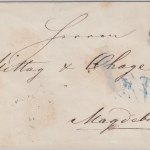 Herren
Mittag & Chage
Magdeb